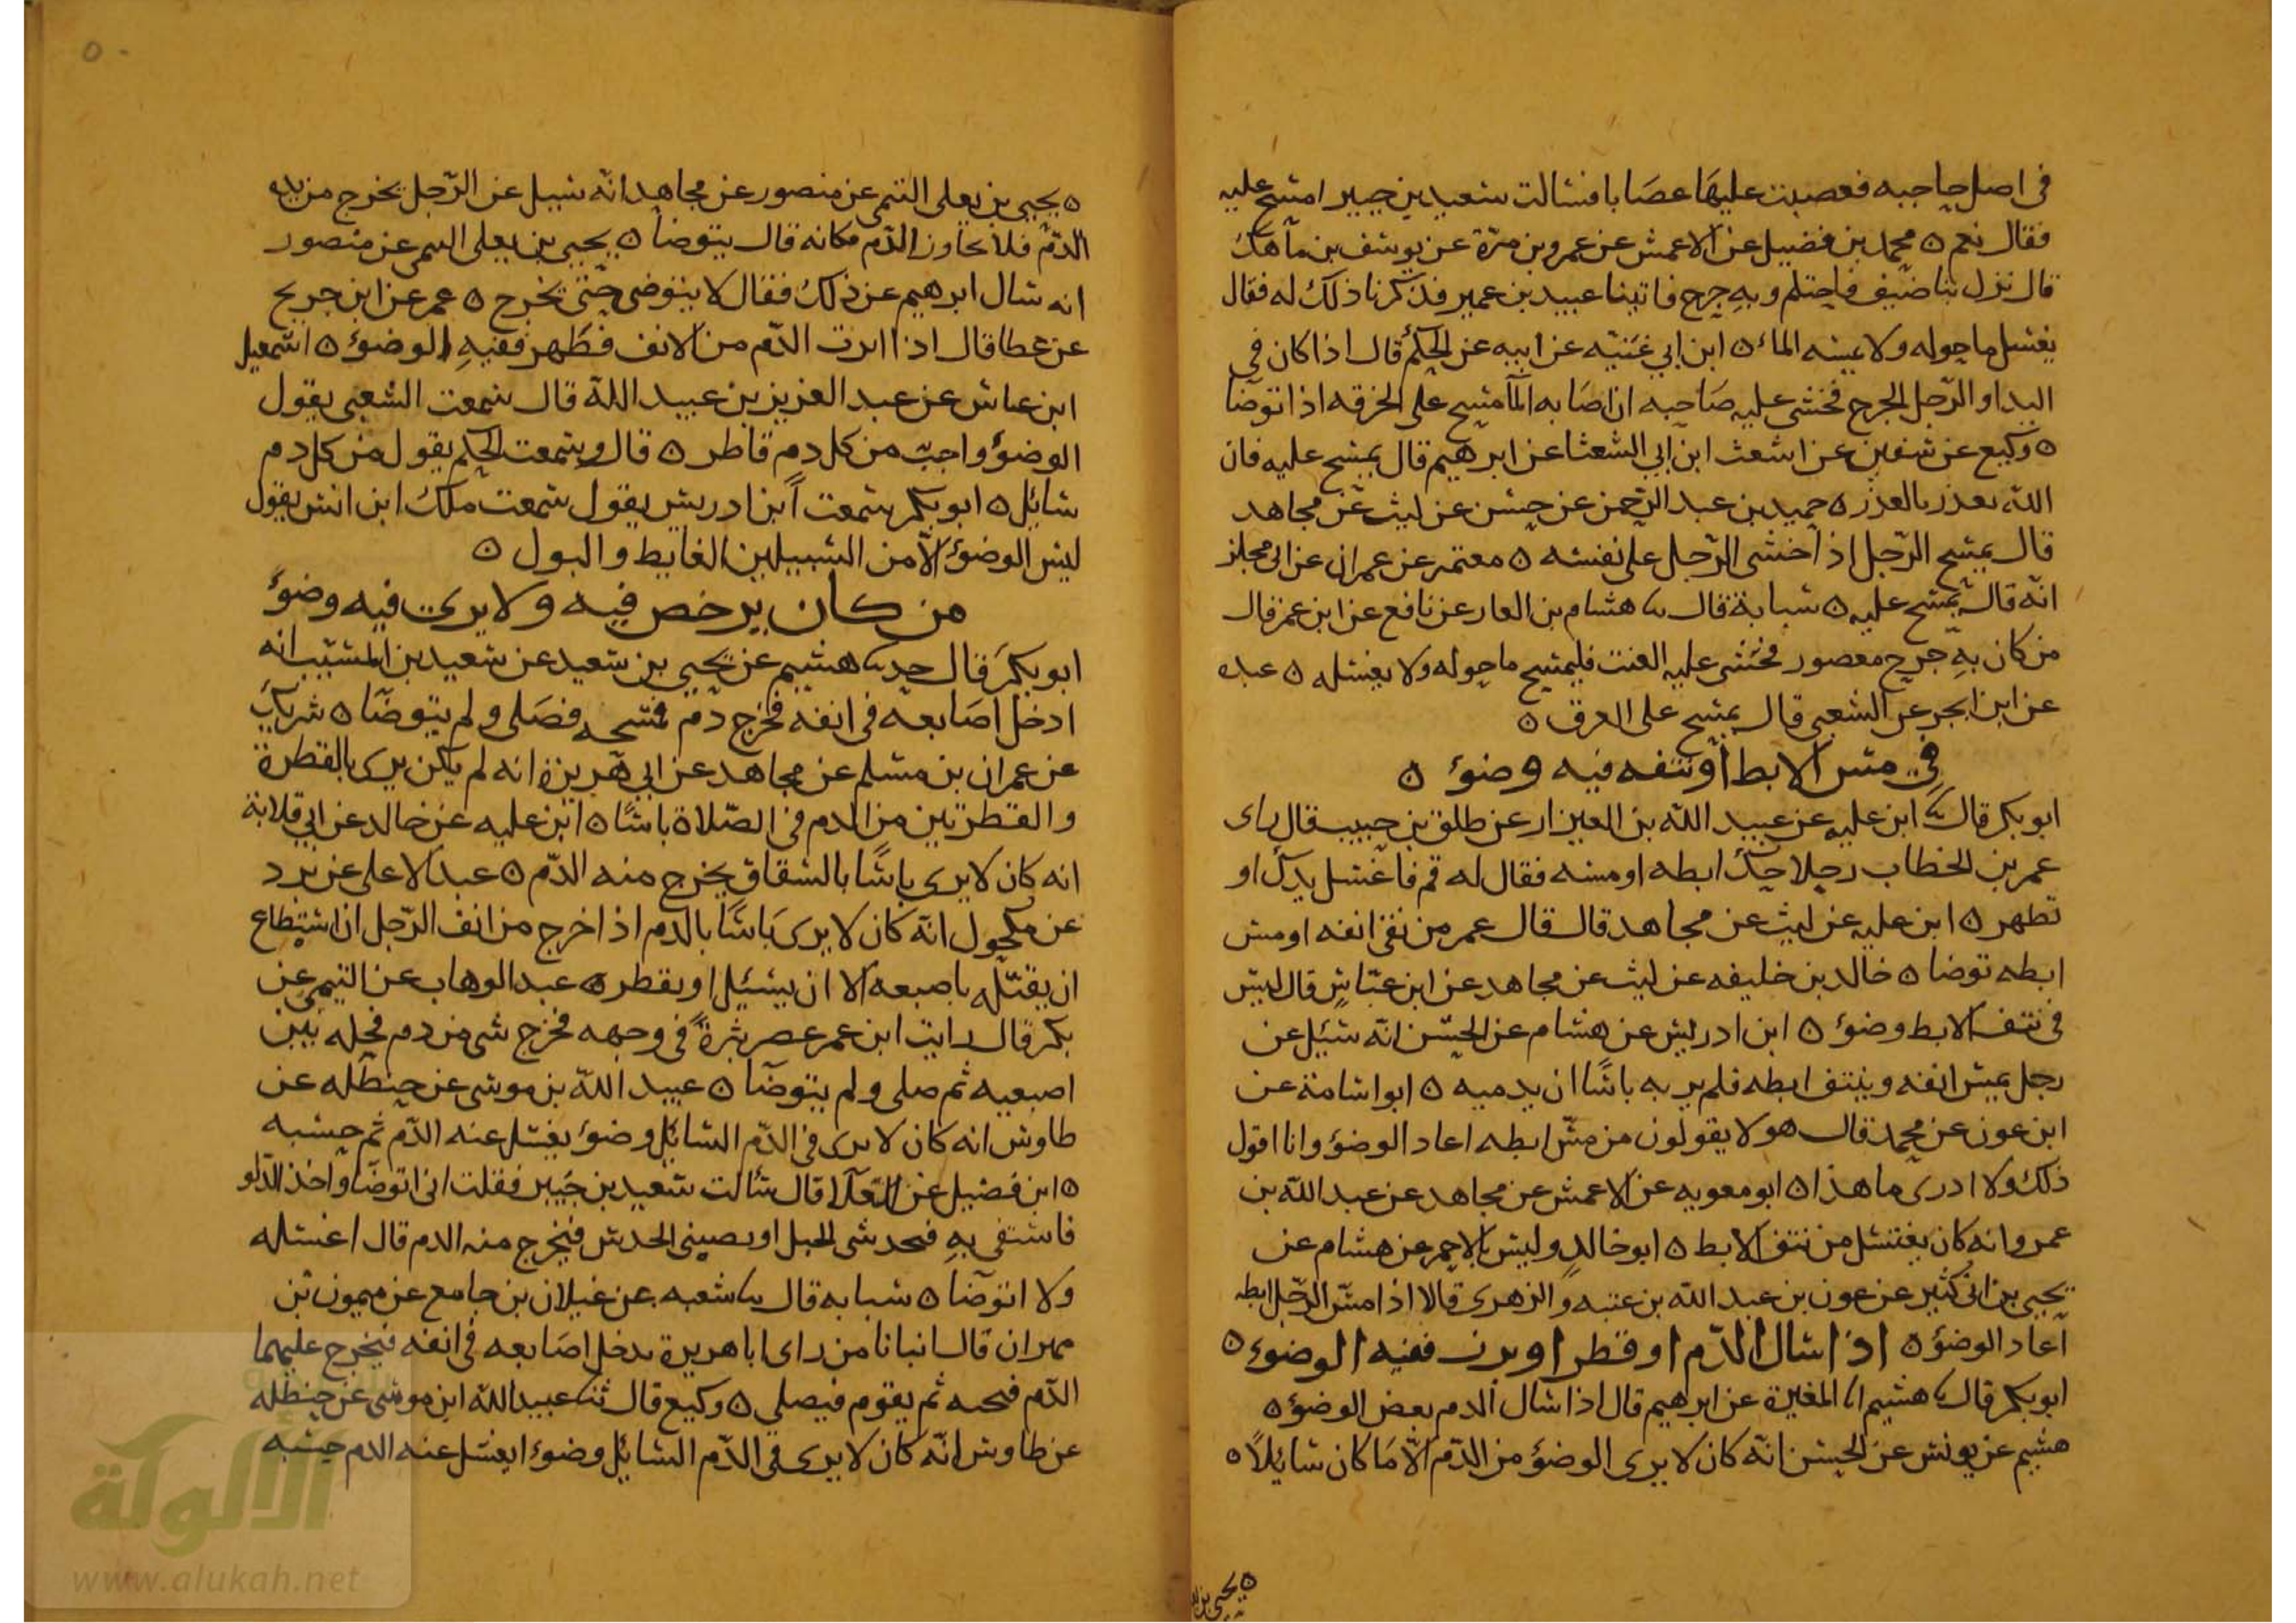 في اصل حاجبه فعصبت عليها عصابا فسالت سعيد بن جبير امسح عليه
فقال نعم ه محمد بن فضيل عن الاعمش عن عمرو بن مرة عن يوسف بن ماهك
قال نزل بنا ضيف فاحتلم وبه جرح فاتينا عبيد بن عمير فذكرنا ذلك له فقال
يغسل ما حوله ولا يمسه الماء ه ابن ابي غنيه عن ابيه عن الحكم قال اذا كان في
اليد او الرجل الجرح فخشى عليه صاحبه ان اصابه الما مسح على الخرقه اذا توضا
ه وكيع عن سفين عن اشعث ابن ابي الشعثا عن ابرهيم قال يمسح عليه فان
الله يعذر بالعذر ه حميد بن عبد الرحمن عن حسن عن ليث عن مجاهد
قال يمسح الرجل اذا خشى الرجل على نفسه ه معتمر عن عمران عن ابى مجلز
انه قال يمسح عليه ه شبابة قال نا هشام بن الغار عن نافع عن ابن عمر قال
من كان به جرح معصور فخشى عليه العنت فليمسح ما حوله ولا يغسله ه عبده
عن ابن ابجر عن الشعبي قال يمسح على العرق ه
في مس الابط او نتفه فيه وضوء ه
ابو بكر قال نا ابن عليه عن عبيد الله بن العيزار عن طلق بن حبيب قال راى
عمر بن الخطاب رجلا حك ابطه او مسه فقال له قم فاغسل يدك او
تطهر ه ابن عليه عن ليث عن مجاهد قال قال عمر من نقى انفه او مس
ابطه توضا ه خالد بن خليفه عن ليث عن مجاهد عن ابن عباس قال ليس
في نتف الابط وضوء ه ابن ادريس عن هشام عن الحسن انه سئل عن
رجل يمس انفه وينتف ابطه فلم ير به باسا ان يدميه ه ابو اسامة عن
ابن عون عن محمد قال هولا يقولون من مس ابطه اعاد الوضوء وانا اقول
ذلك ولا ادرى ما هذا ه ابو معويه عن الاعمش عن مجاهد عن عبد الله بن
عمرو انه كان يغتسل من نتف الابط ه ابو خالد وليس بالاحمر عن هشام عن
يحيى بن ابى كثير عن عون بن عبد الله بن عتبه والزهرى قالا اذا مس الرجل ابطه
اعاد الوضوء ه اذا سال الدم او قطر او برز ففيه الوضوء ه
ابو بكر قال نا هشيم انا المغيرة عن ابرهيم قال اذا سال الدم نقض الوضوء ه
هشيم عن يونس عن الحسن انه كان لا يرى الوضوء من الدم الا ما كان سائلا ه
ه يحيى بن
٥٠
ه يحيى بن يعلى التيمى عن منصور عن مجاهد انه سيل عن الرجل يخرج من يده
الدم فلا يجاوز الدم مكانه قال يتوضا ه يحيى بن يعلى التيمى عن منصور
انه سال ابرهيم عن ذلك فقال لا يتوضى حتى يخرج ه عمر عن ابن جريج
عن عطا قال اذا ابرت الدم من الانف فظهر ففيه الوضوء ه اسمعيل
ابن عياش عن عبد العزيز بن عبيد الله قال سمعت الشعبى يقول
الوضوء واجب من كل دم قاطر ه قال وسمعت الحكم يقول من كل دم
سائل ه ابو بكر سمعت ابن ادريس يقول سمعت ملك ابن انس يقول
ليس الوضوء الا من السبيلين الغايط والبول ه
من كان يرخص فيه ولا يرى فيه وضوء
ابو بكر قال حدثنا هشيم عن يحيى بن سعيد عن سعيد بن المسيب انه
ادخل اصابعه في انفه فخرج دم فمسحه فصلى ولم يتوضا ه شريك
عن عمران بن مسلم عن مجاهد عن ابي هريرة انه لم يكن يرى بالقطرة
والقطرتين من الدم في الصلاة باسا ه ابن عليه عن خالد عن ابي قلابة
انه كان لا يرى باسا بالشقاق يخرج منه الدم ه عبد الاعلى عن برد
عن مكحول انه كان لا يرى باسا بالدم اذا خرج من انف الرجل ان استطاع
ان يفتله باصبعه الا ان يسيل او يقطر ه عبد الوهاب عن التيمي عن
بكر قال رايت ابن عمر عصر بثرة في وجهه فخرج شى من دم فحكه بين
اصبعيه ثم صلى ولم يتوضا ه عبيد الله بن موسى عن حنظله عن
طاوس انه كان لا يرى في الدم السائل وضوء يغسل عنه الدم ثم حسبه
ه ابن فضيل عن العلا قال سالت سعيد بن جبير فقلت انى اتوضا واخذ الدلو
فاستقى به فيخدشى الحبل او يصيبنى الخدش فيخرج منه الدم قال اغسله
ولا اتوضا ه شبابه قال نا شعبه عن غيلان بن جامع عن ميمون بن
مهران قال انبانا من راى ابا هريرة يدخل اصابعه في انفه فيخرج عليهما
الدم فيحته ثم يقوم فيصلي ه وكيع قال ثنا عبيد الله ابن موسى عن حنظله
عن طاوس انه كان لا يرى في الدم السائل وضوءا يغسل عنه الدم حسبه
الألوكة
www.alukah.net